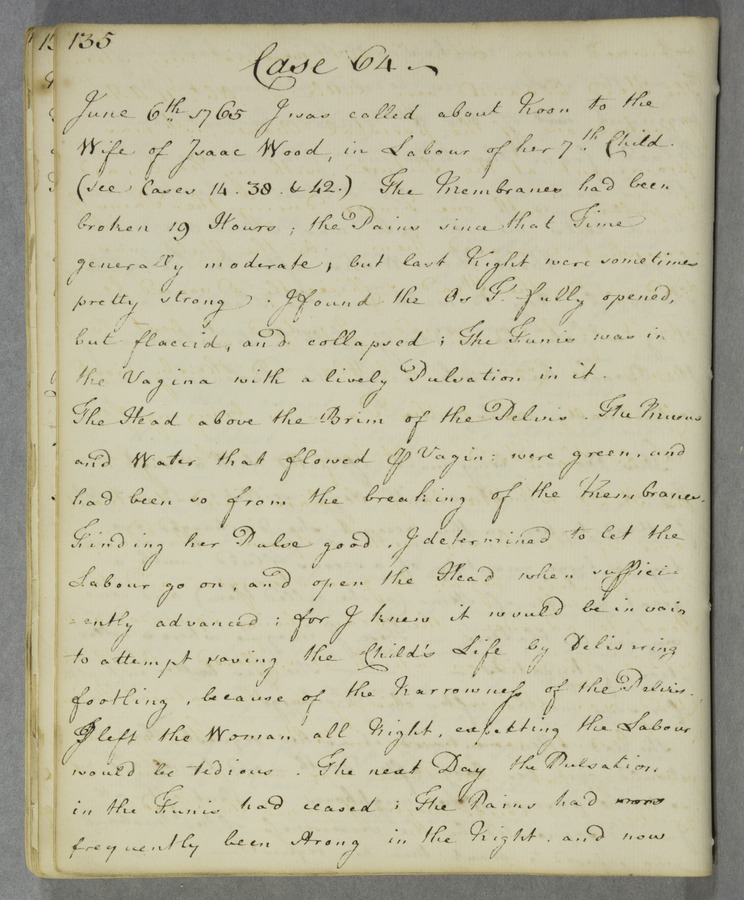 135
Case 64
June 6th. 1765 I was called about Noon to the
Wife of Isaac Wood, in Labour of her 7th. Child.
(see Cases 14. 38. & 42.) The Membranes had been
broken 19 Hours; the Pains since that Time
generally moderate, but last Night were sometimes
pretty strong. I found the Os T. fully opened,
but flaccid, and collapsed; The Funis was in
the Vagina with a lively Pulsation in it.
The Head above the Brim of the Pelvis. The Mucus
and Water that flowed Vagin: were green, and
had been so from the breaking of the Membranes.
Finding her Pulse good, I determined to let the
Labour go on, and open the Head when suffici=
=ently advanced; for I knew it would be in vain
to attempt saving the Child's Life by Delivering
footling, because of the Narrowness of the Pelvis.
I left the Woman all Night, expekting the Labour
would be tedious. The next Day the Pulsation
in the Funis had ceased; The Pains had more
frequently been strong in the Night, and now